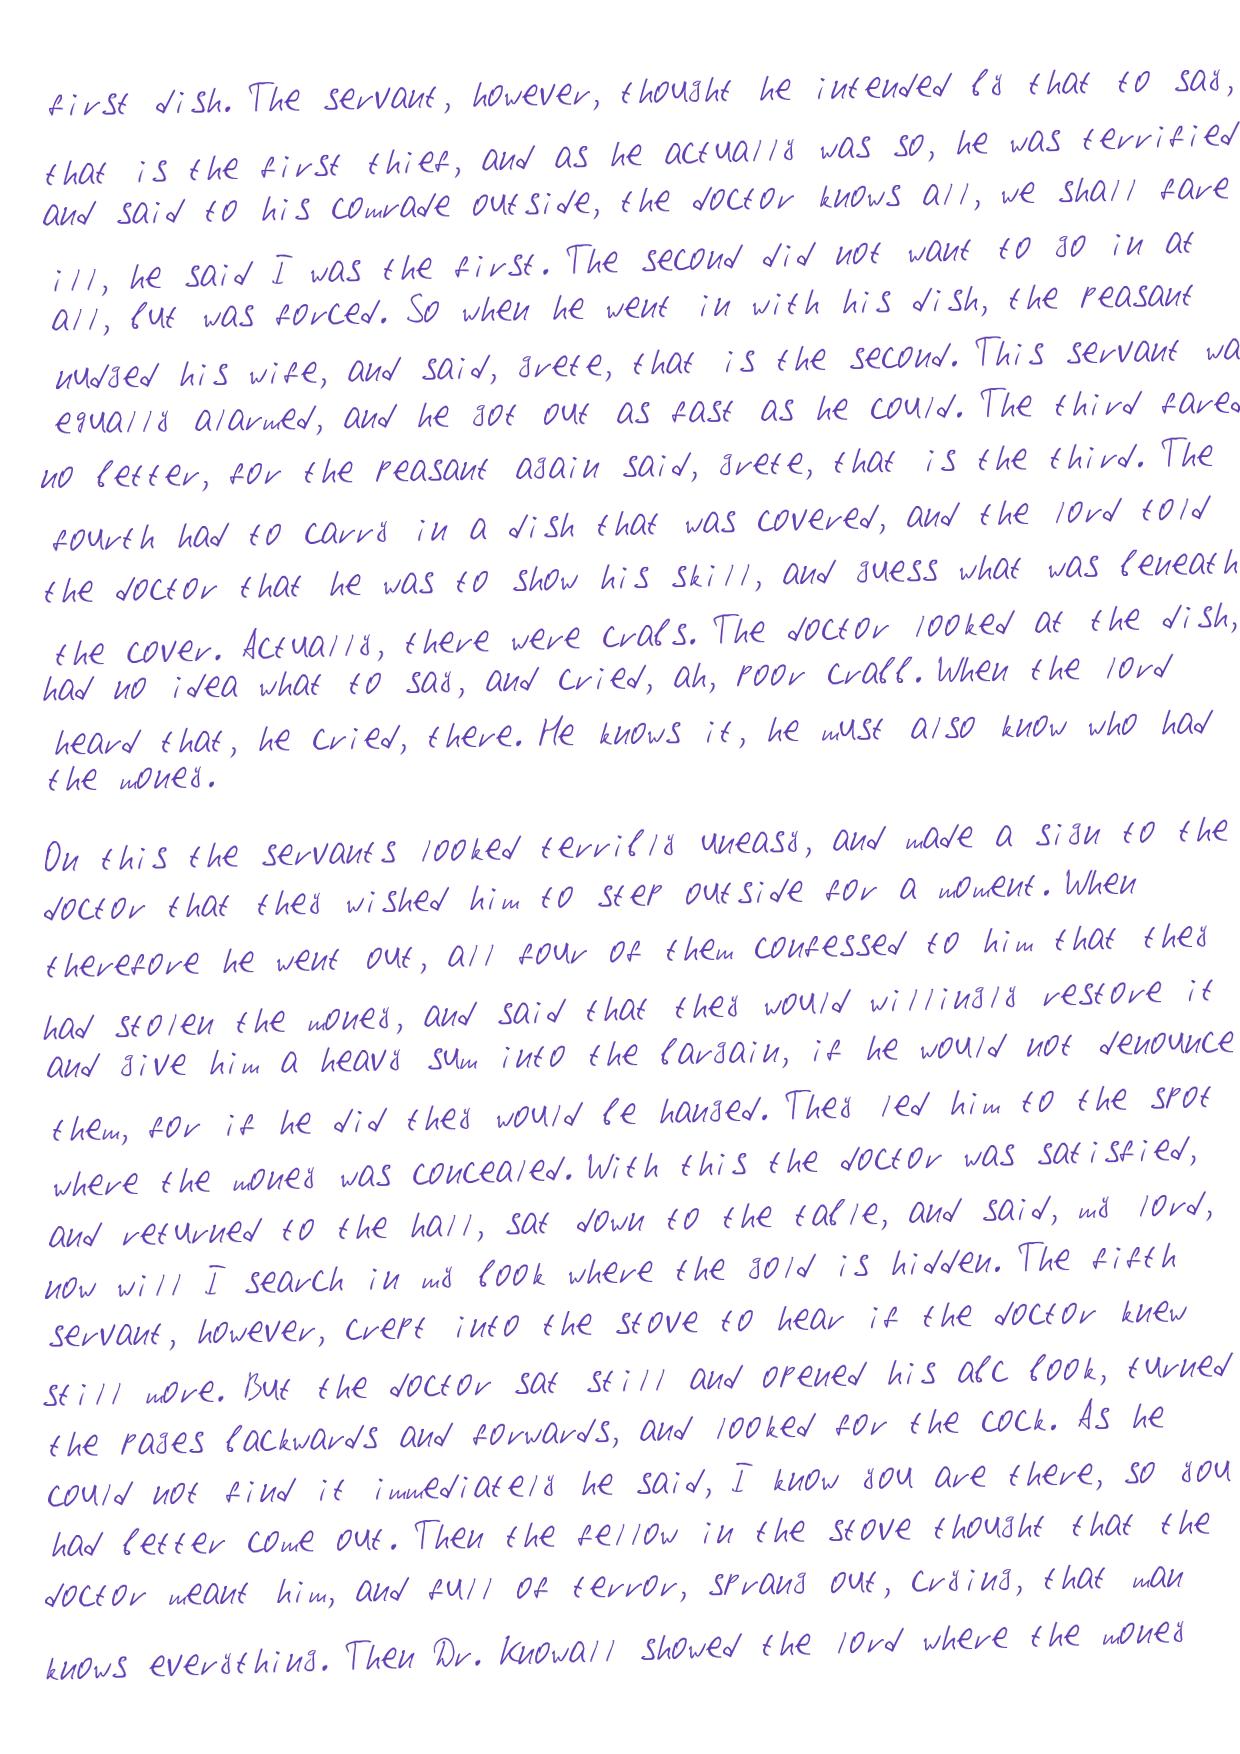 first dish. The servant, however, thought he intended by that to say,
that is the first thief, and as he actually was so, he was terrified
and said to his comrade outside, the doctor knows all, we shall fare
ill, he said I was the first. The second did not want to go in at
all, but was forced. So when he went in with his dish, the peasant
nudged his wife, and said, grete, that is the second. This servant wa
equally alarmed, and he got out as fast as he could. The third fared
no better, for the peasant again said, grete, that is the third. The
fourth had to carry in a dish that was covered, and the lord told
the doctor that he was to show his skill, and guess what was beneath
the cover. Actually, there were crabs. The doctor looked at the dish,
had no idea what to say, and cried, ah, poor crabb. When the lord
heard that, he cried, there. He knows it, he must also know who had
the money.
On this the servants looked terribly uneasy, and made a sign to the
doctor that they wished him to step outside for a moment. When
therefore he went out, all four of them confessed to him that they
had stolen the money, and said that they would willingly restore it
and give him a heavy sum into the bargain, if he would not denounce
them, for if he did they would be hanged. They led him to the spot
where the money was concealed. With this the doctor was satisfied,
and returned to the hall, sat down to the table, and said, my lord,
now will I search in my book where the gold is hidden. The fifth
servant, however, crept into the stove to hear if the doctor knew
still more. But the doctor sat still and opened his abc book, turned
the pages backwards and forwards, and looked for the cock. As he
could not find it immediately he said, I know you are there, so you
had better come out. Then the fellow in the stove thought that the
doctor meant him, and full of terror, sprang out, crying, that man
knows everything. Then Dr. Knowall showed the lord where the money